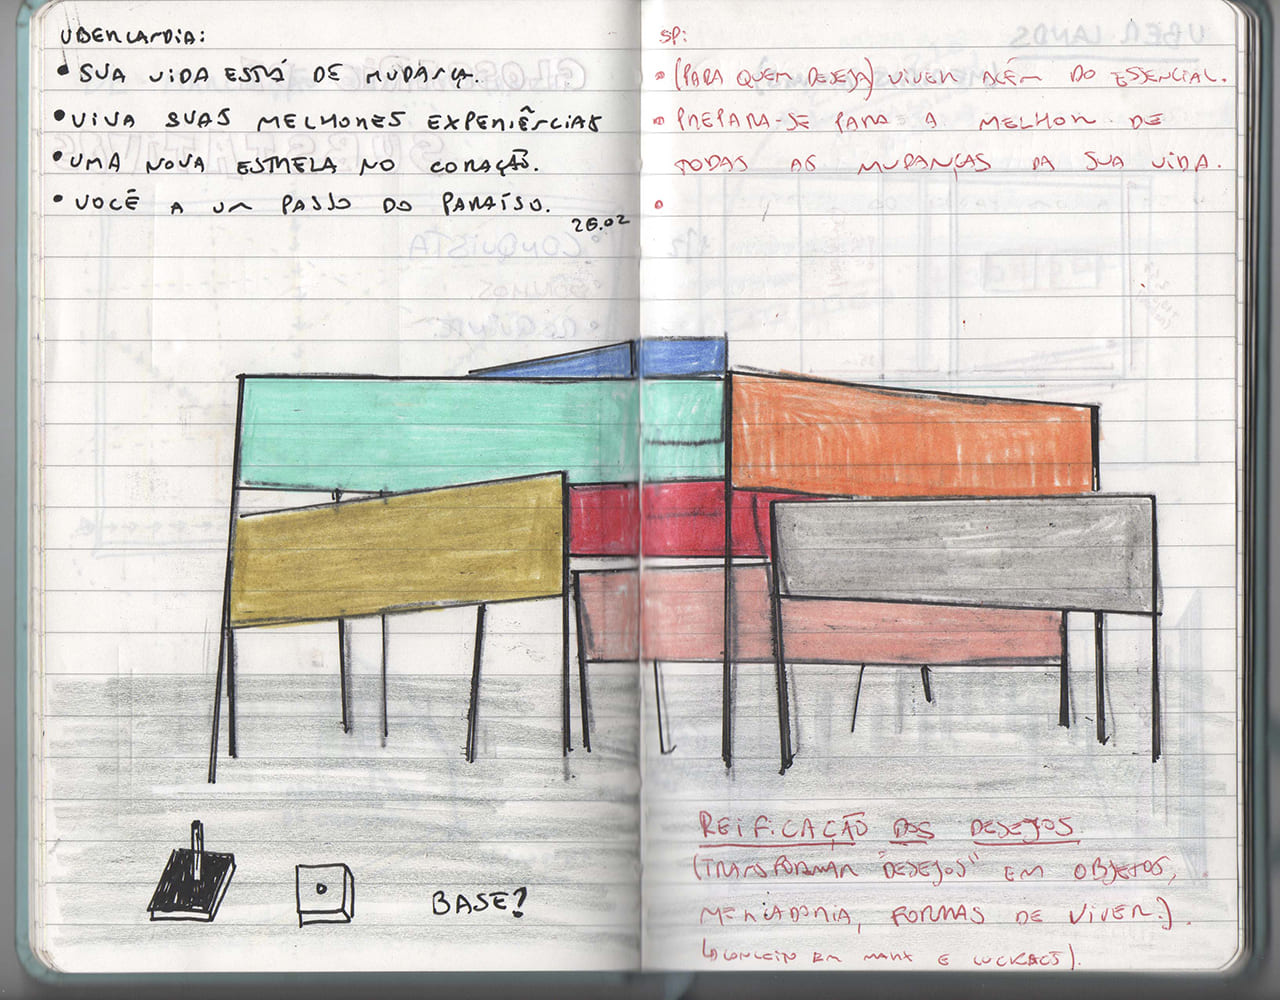 UBERLANDIA:
• SUA VIDA ESTÁ DE MUDANÇA.
• VIVA SUAS MELHORES EXPERIÊNCIAS
• UMA NOVA ESTRELA NO CORAÇÃO.
• VOCÊ A UM PASSO DO PARAÍSO.
26.02
SP:
• (PARA QUEM DESEJA) VIVER ALÉM DO ESSENCIAL.
• PREPARA-SE PARA A MELHOR DE
TODAS AS MUDANÇAS DA SUA VIDA.
•
BASE?
REIFICAÇÃO DOS DESEJOS.
(TRANSFORMAR "DESEJOS" EM OBJETOS,
MERCADORIA, FORMAS DE VIVER.)
EM MARX E